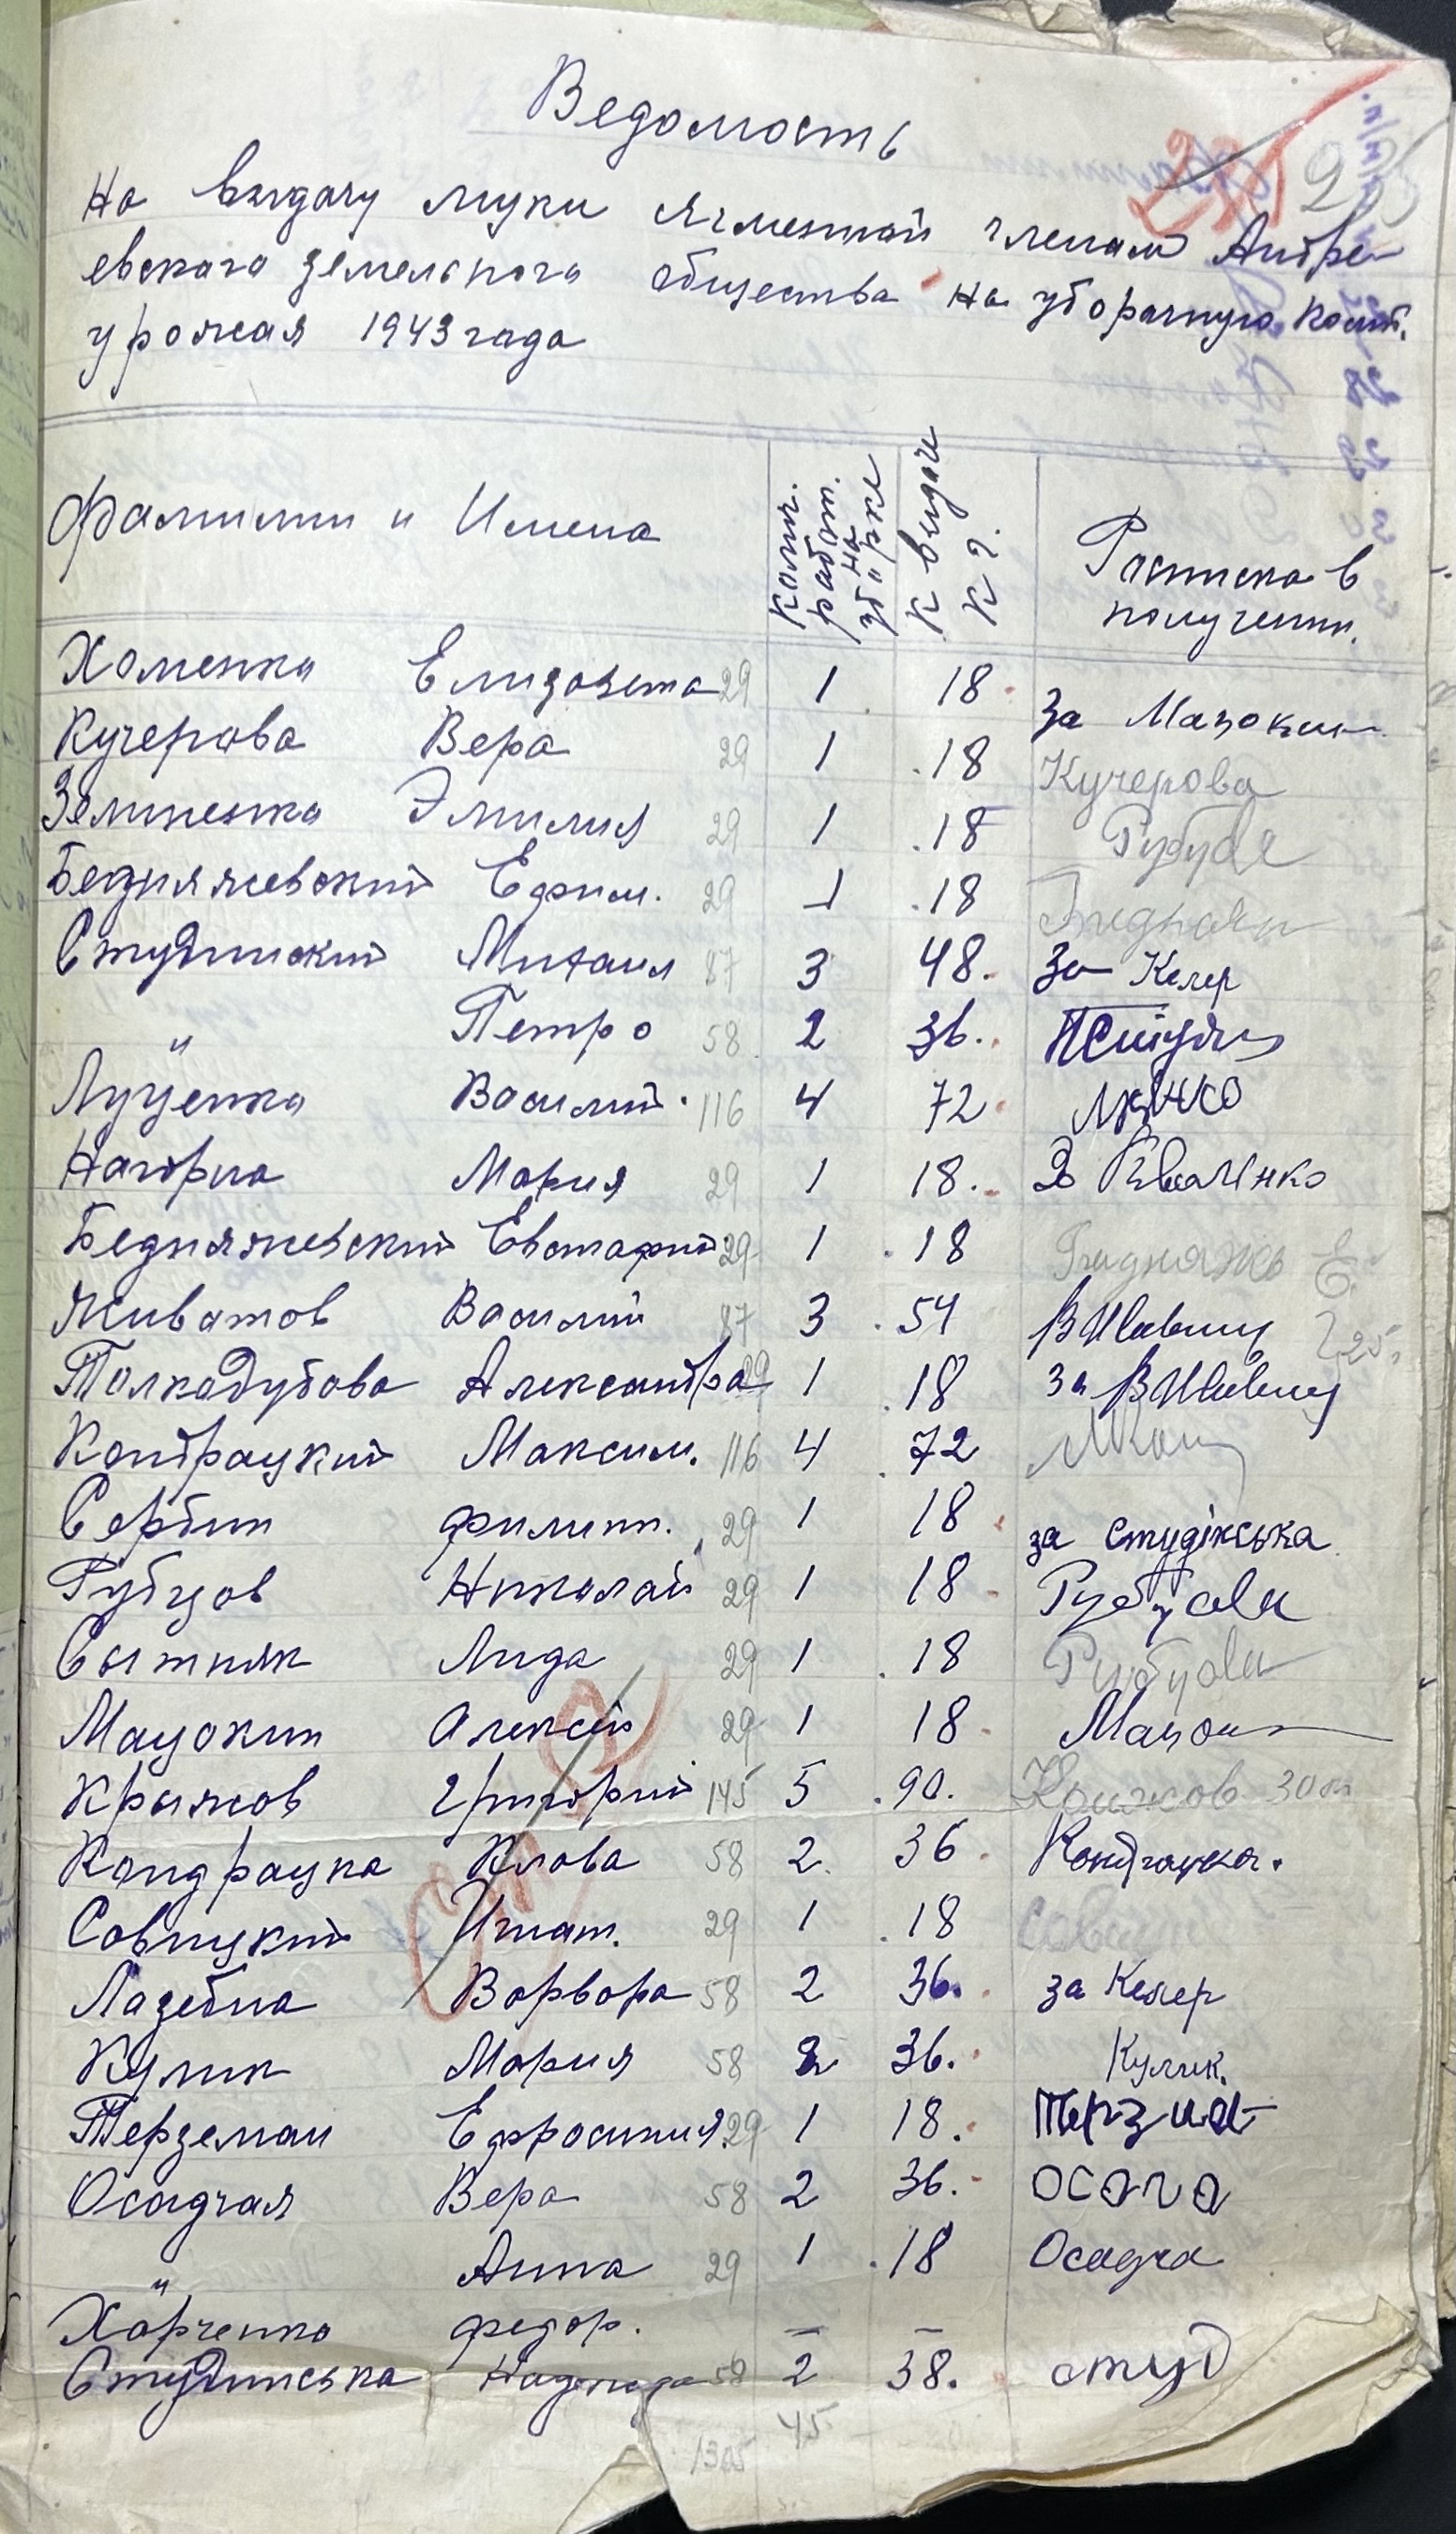 Ведомость
На выдачу муки ячменной членам Андре-
евскага земельнога общества на уборачную комп.
урожая 1943 года
Фамилии и Имена Колич. работ. на уборке К выдаче кг. Росписка в получении.
Хоменко Елизавета 29 1 18 за Мацокин
Кучерова Вера 29 1 18 Кучерова
Зелиненко Эмилия 29 1 18
Бедняжевский Ефим. 29 1 18
Студинский Михаил 87 3 48. за Келер
" Петро 58 2 36.
Луценко Василий 116 4 72
Нагорна Мария 29 1 18.
Бедняжевский Евстафий 29 1 18 Бидняжь Е
Живатов Василий 87 3 54
Толкадубова Александра 29 1 18 за
Кондрацкий Максим. 116 4 72
Сербин Филипп. 29 1 18 за студінська
Рубцов Николай 29 1 18 Рубцова
Сытник Лида 29 1 18 Рубцова
Мацокин Алексей 29 1 18
Крыжов Григорий 145 5 90.
Кондрацка Клава 58 2. 36 Кондрацка.
Савицкий Игнат. 29 1 18
Лазебна Варвара 58 2 36. за Келер
Кулик Мария 58 2 36. Кулик.
Терземан Ефросиния 29 1 18.
Осадчая Вера 58 2 36. осача
" Анна 29 1 18 Осадча
Харченко Федор. – –
Студинська Надежда 58 2 38. студ
1305 45